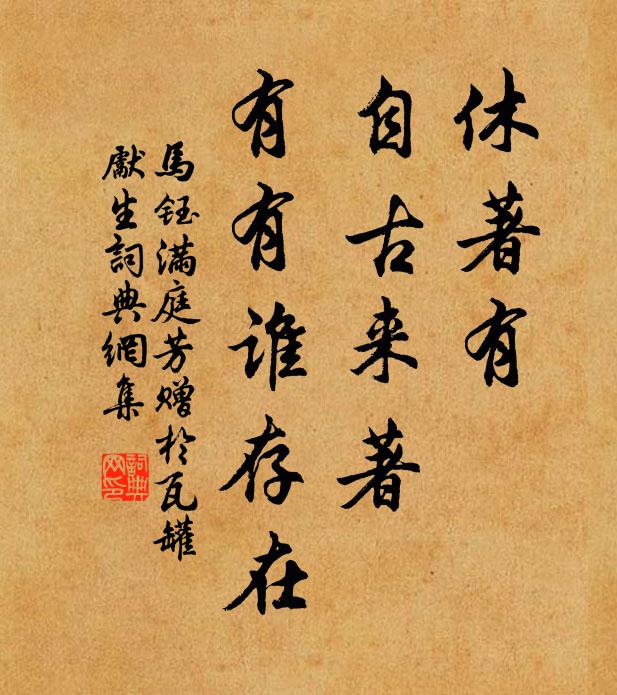 休著有
自古来著
有有谁存在
馬鈺满庭芳赠於瓦罐
獻生詞典網集
詞典网印